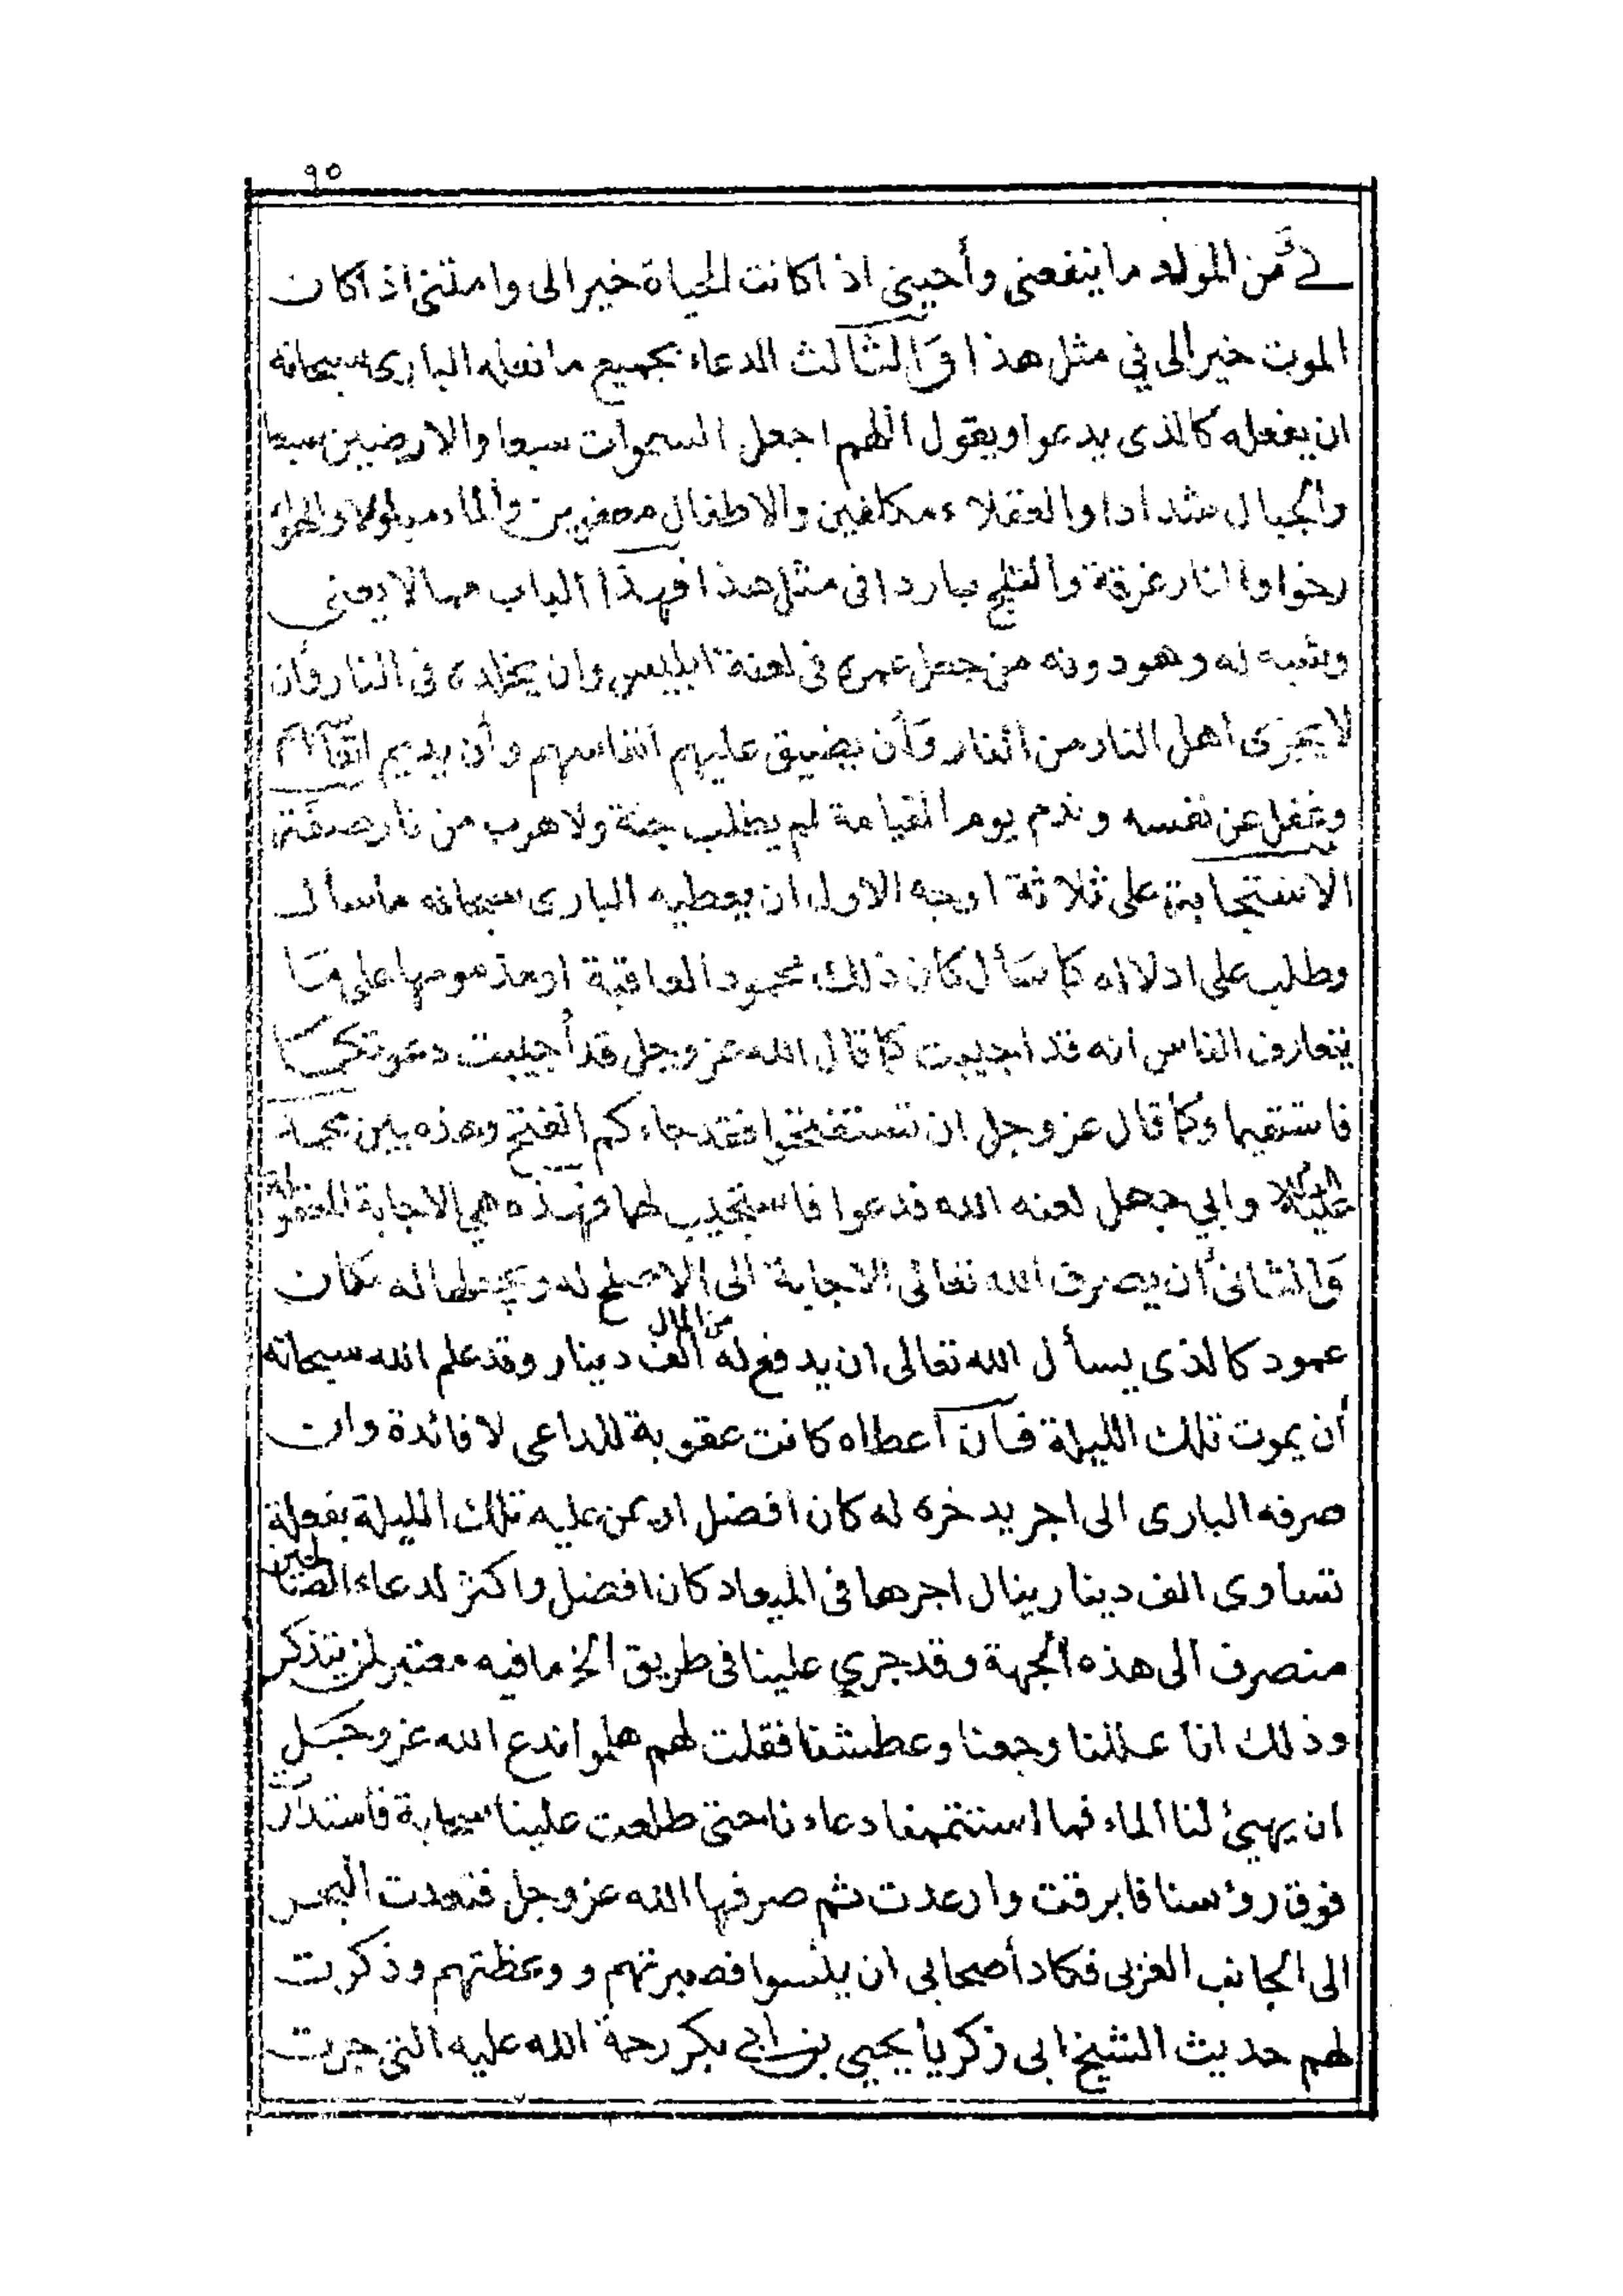 ٩٥
لي من المولد ما ينفعنى وأحينى اذا كانت الحياة خيرا لى وامتنى اذا كان
الموت خيرا لى في مثل هذا والثالث الدعاء بجميع ما فعله البارى سبحانه
ان يفعله كالذى يدعوا ويقول اللهم اجعل السموات سبعا والارضين سبعا
والجبال شدادا والعقلاء مكلفين والاطفال والماء مبلولا والهواء
رخوا والنار محرقة والثلج باردا فى مثل هذا فهذا الباب مما لا يعنى
وشبه له وهو دونه من جعل عمره فى لعنة ابليس وان يخلده فى النار وأن
لا يجزى اهل النار من النار وأن يضيق عليهم انفاسهم وأن يديم انتقامهم
وغفل عن نفسه وندم يوم القيامة لم يطلب جنة ولا هرب من نار صفة
الاستجابة على ثلاثة اوجه الاول ان يعطيه البارى سبحانه ما سأل
وطلب على ادلاله كما سأل كان ذلك محمود العاقبة او مذمومها على ما
يتعارف الناس انه قد اجيبت كما قال الله عز وجل قد أجيبت دعوتكما
فاستقيما وكما قال عز وجل ان تستفتحوا فقد جاءكم الفتح وهذه بين محمد
عليه السلام وابي جهل لعنه الله فدعوا فاستجيب لهما فهذه هي الاجابة
والثانى أن يصرف الله تعالى الاجابة الى الاصلح له ويجعلها له مكان
عمود كالذى يسأل الله تعالى ان يدفع له من المال الف دينار وقد علم الله سبحانه
أن يموت تلك الليلة فان اعطاه كانت عقوبة للداعى لا فائدة وان
صرفه البارى الى اجر يدخره له كان افضل او يمن عليه تلك الليلة بفعلة
تساوى الف دينار ينال اجرها فى الميعاد كان افضل واكثر لدعاء الصالحين
منصرف الى هذه الجهة وقد جري علينا فى طريق الحج ما فيه معتبر لمن يتذكر
وذلك انا عللنا وجعنا وعطشنا فقلت لهم هلموا ندع الله عز وجل
ان يهيئ لنا الماء فما استتممنا دعاءنا حتى طلعت علينا سحابة فاستدارت
فوق رؤسنا فابرقت وارعدت ثم صرفها الله عز وجل فتعدت البحر
الى الجانب الغربى فكاد أصحابى ان يئسوا فصبرتهم ووعظتهم وذكرت
لهم حديث الشيخ ابى زكرياء يحيي بن ابي بكر رحمة الله عليه التى جرت